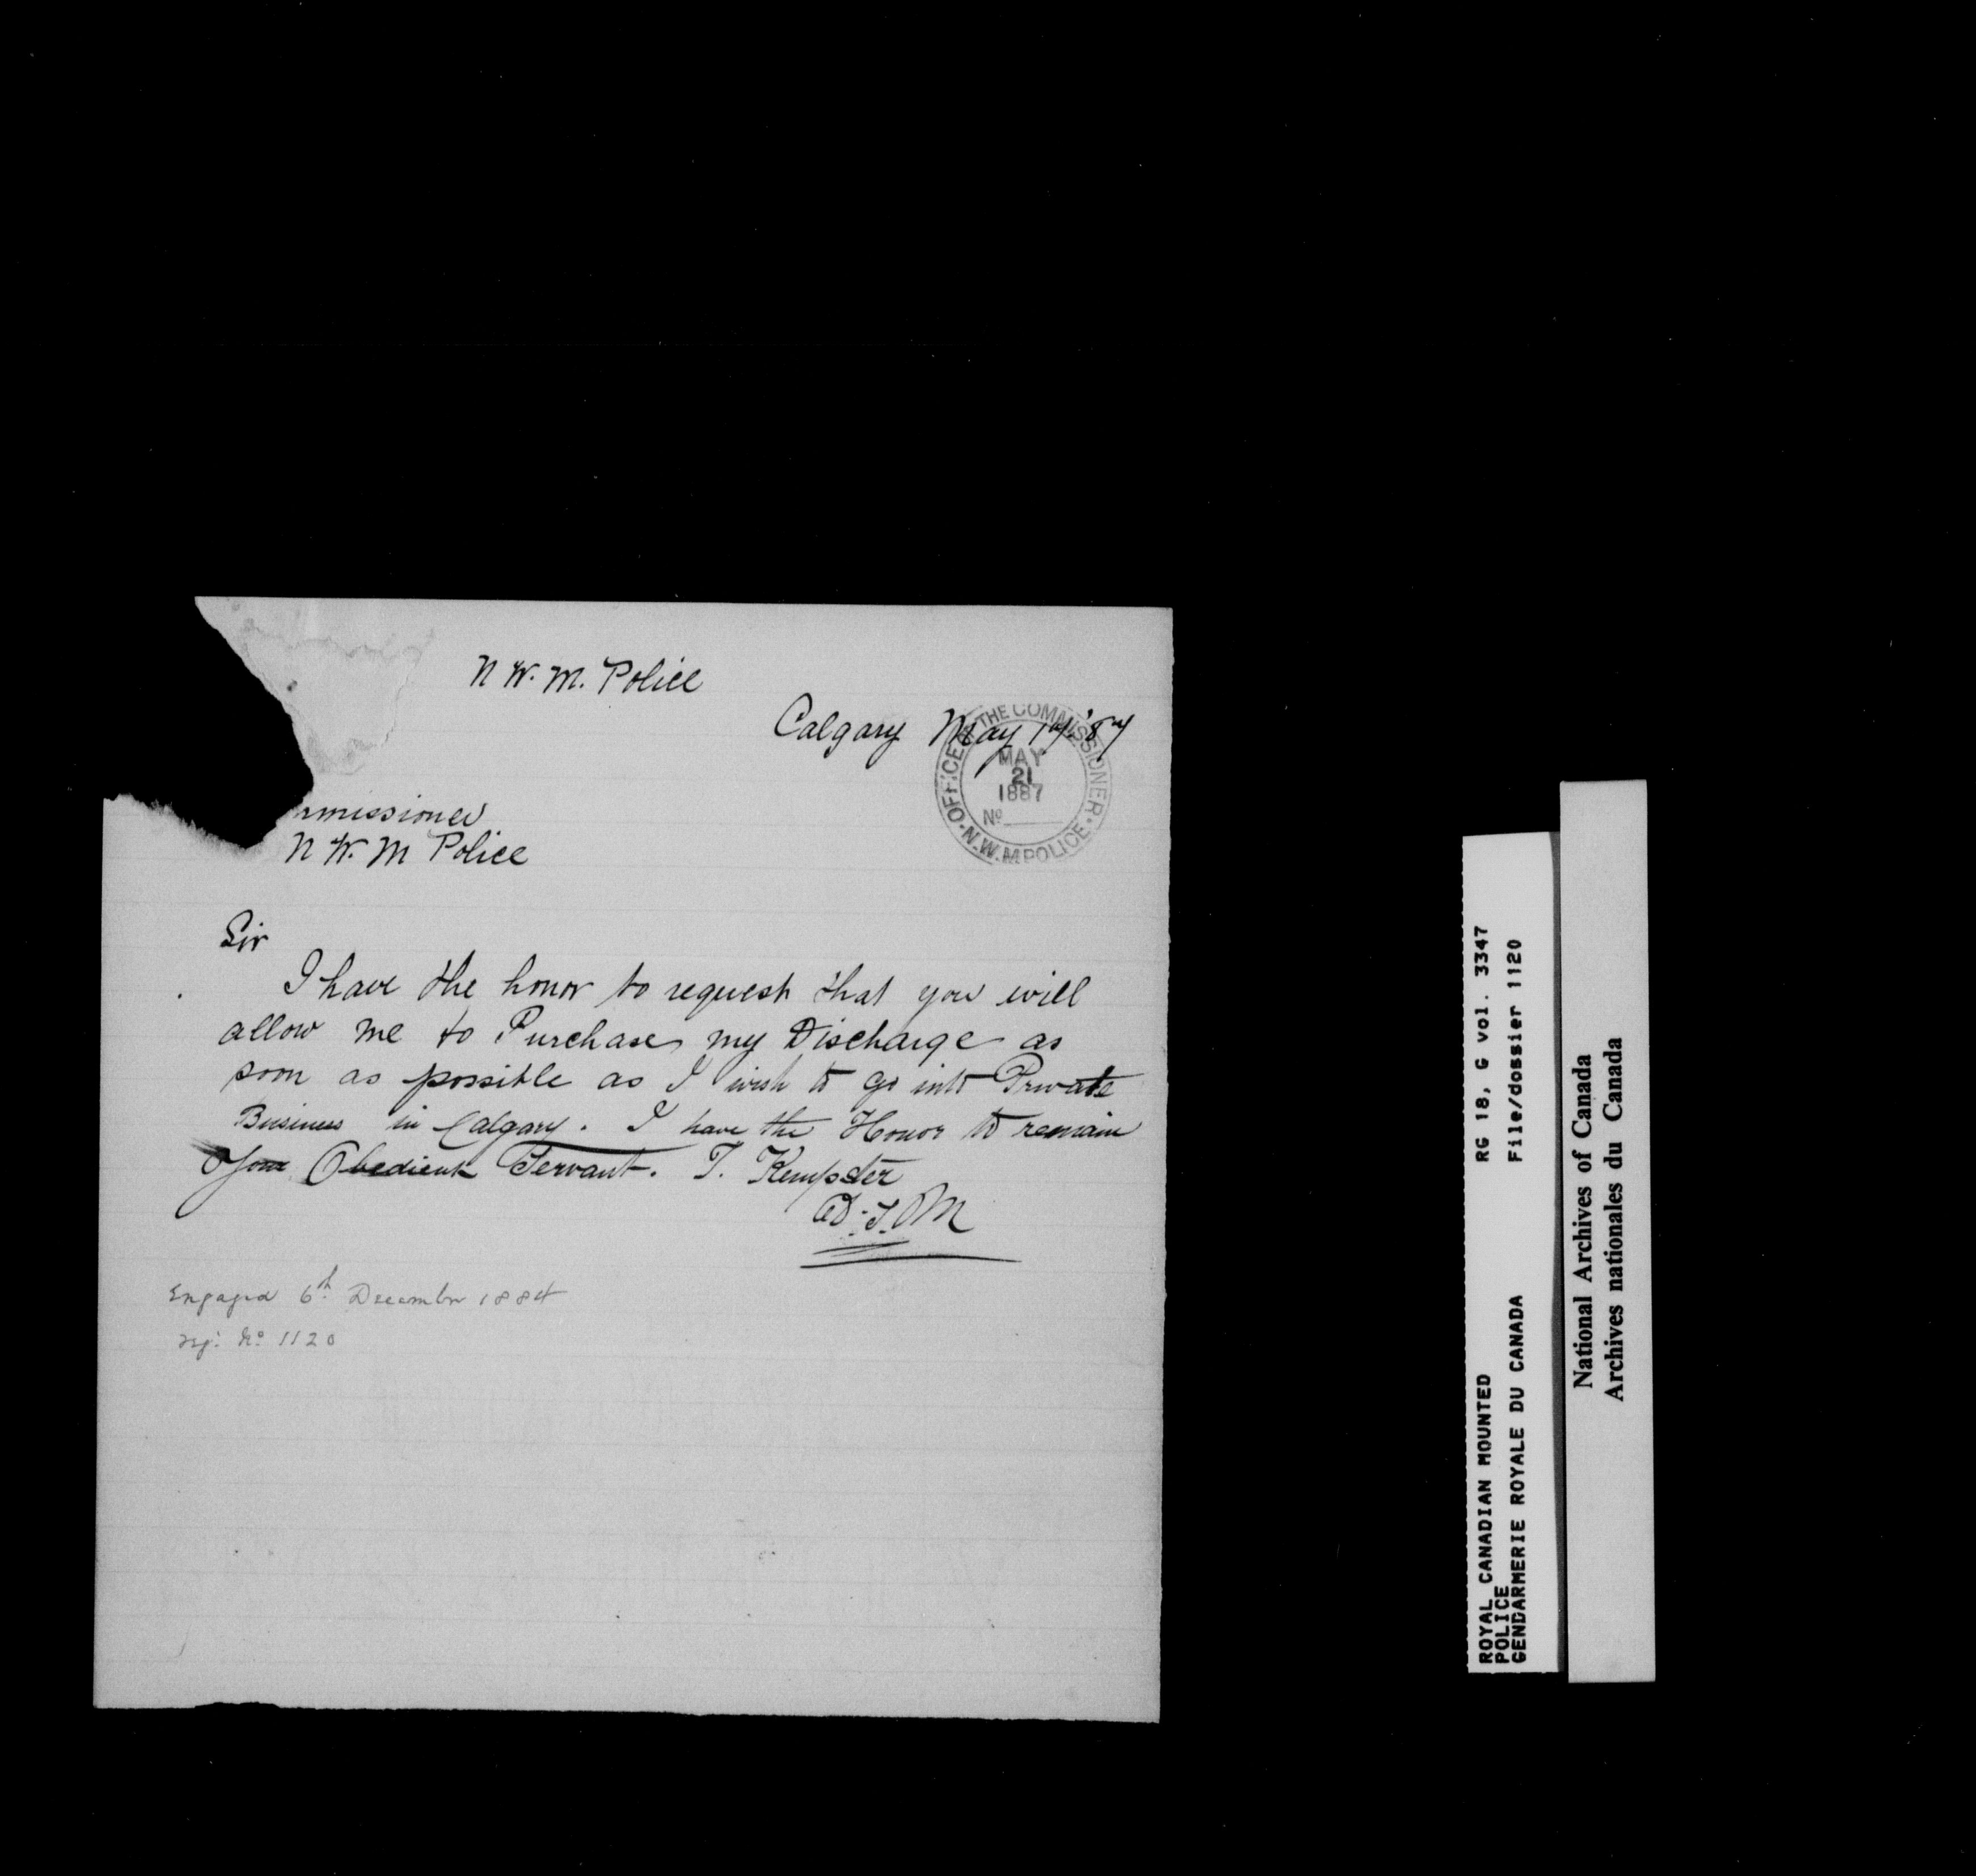 N W. M. Police
Calgary May 14 '87
OFFICE OF THE COMMISSIONER
MAY
21
1887
No
N.W.M POLICE
mmissioner
N W. M Police
Sir
I have the honor to request that you will
allow me to Purchase my Discharge as
soon as possible as I wish to go into Private
Business in Calgary. I have the Honor to remain
Your Obedient Servant. T. Kempster
Engaged 6th December 1884
reg: No 1120
ROYAL CANADIAN MOUNTED RG 18, G vol. 3347
POLICE
GENDARMERIE ROYALE DU CANADA File/dossier 1120
National Archives of Canada
Archives nationales du Canada